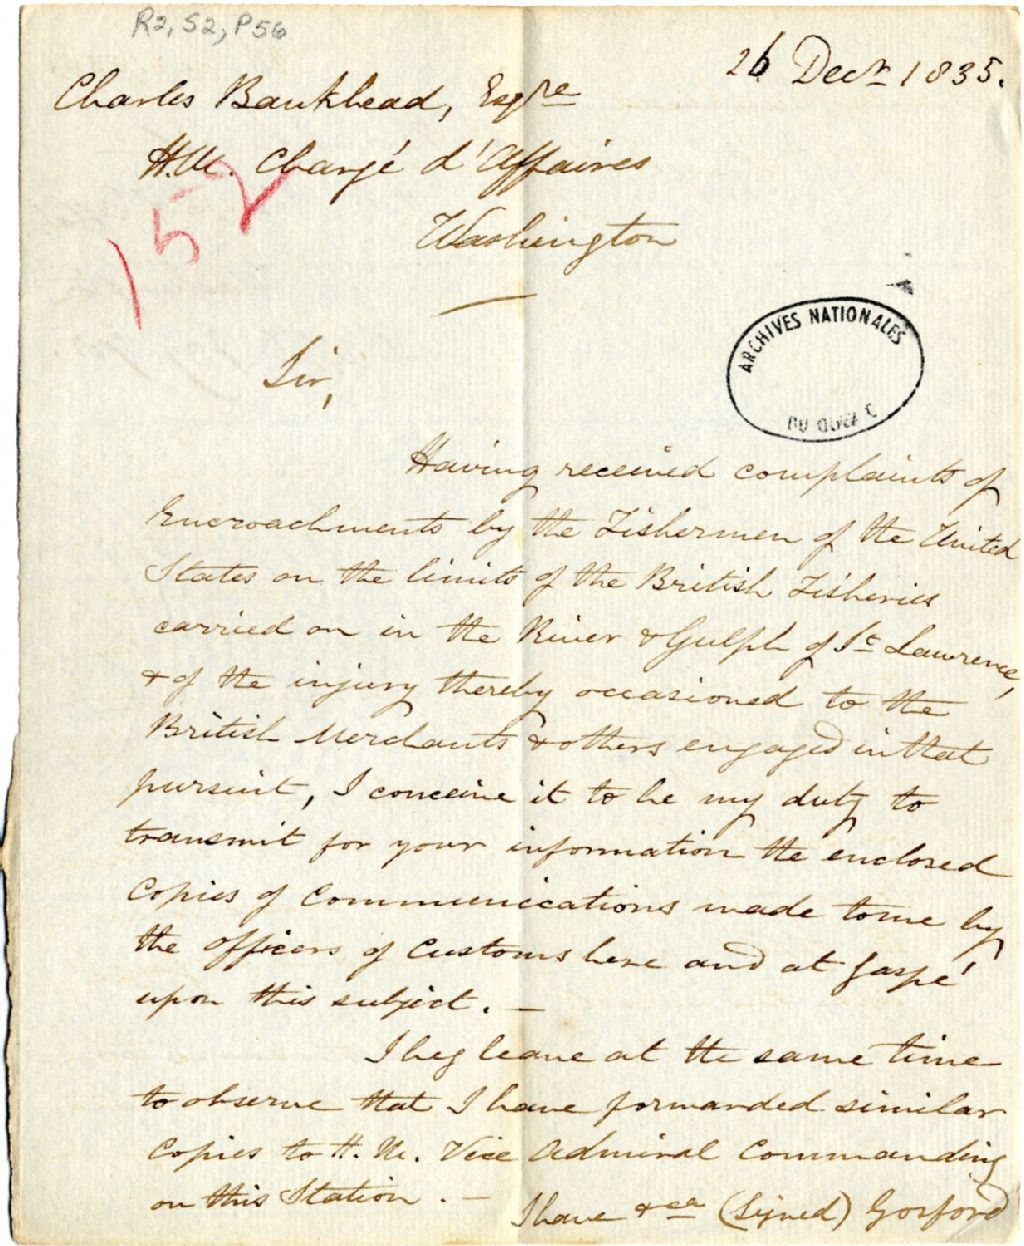 R2, S2, P56
26 Decr. 1835.
Charles Bankhead, Esqre
H.M. Chargé d'Affaires
Washington
152
ARCHIVES NATIONALES
DU QUÉBEC
Sir,
Having received complaints of
Encroachments by the Fishermen of the United
States on the limits of the British Fisheries
carried on in the River & Gulph of St. Lawrence,
& of the injury thereby occasioned to the
British Merchants & others engaged in that
pursuit, I conceive it to be my duty to
transmit for your information the enclosed
Copies of Communications made to me by
the officers of Customs here and at Gaspé
upon this subject. —
I beg leave at the same time
to observe that I have forwarded similar
Copies to H. M. Vice Admiral Commanding
on this Station. —
I have &ca (Signed) Gosford